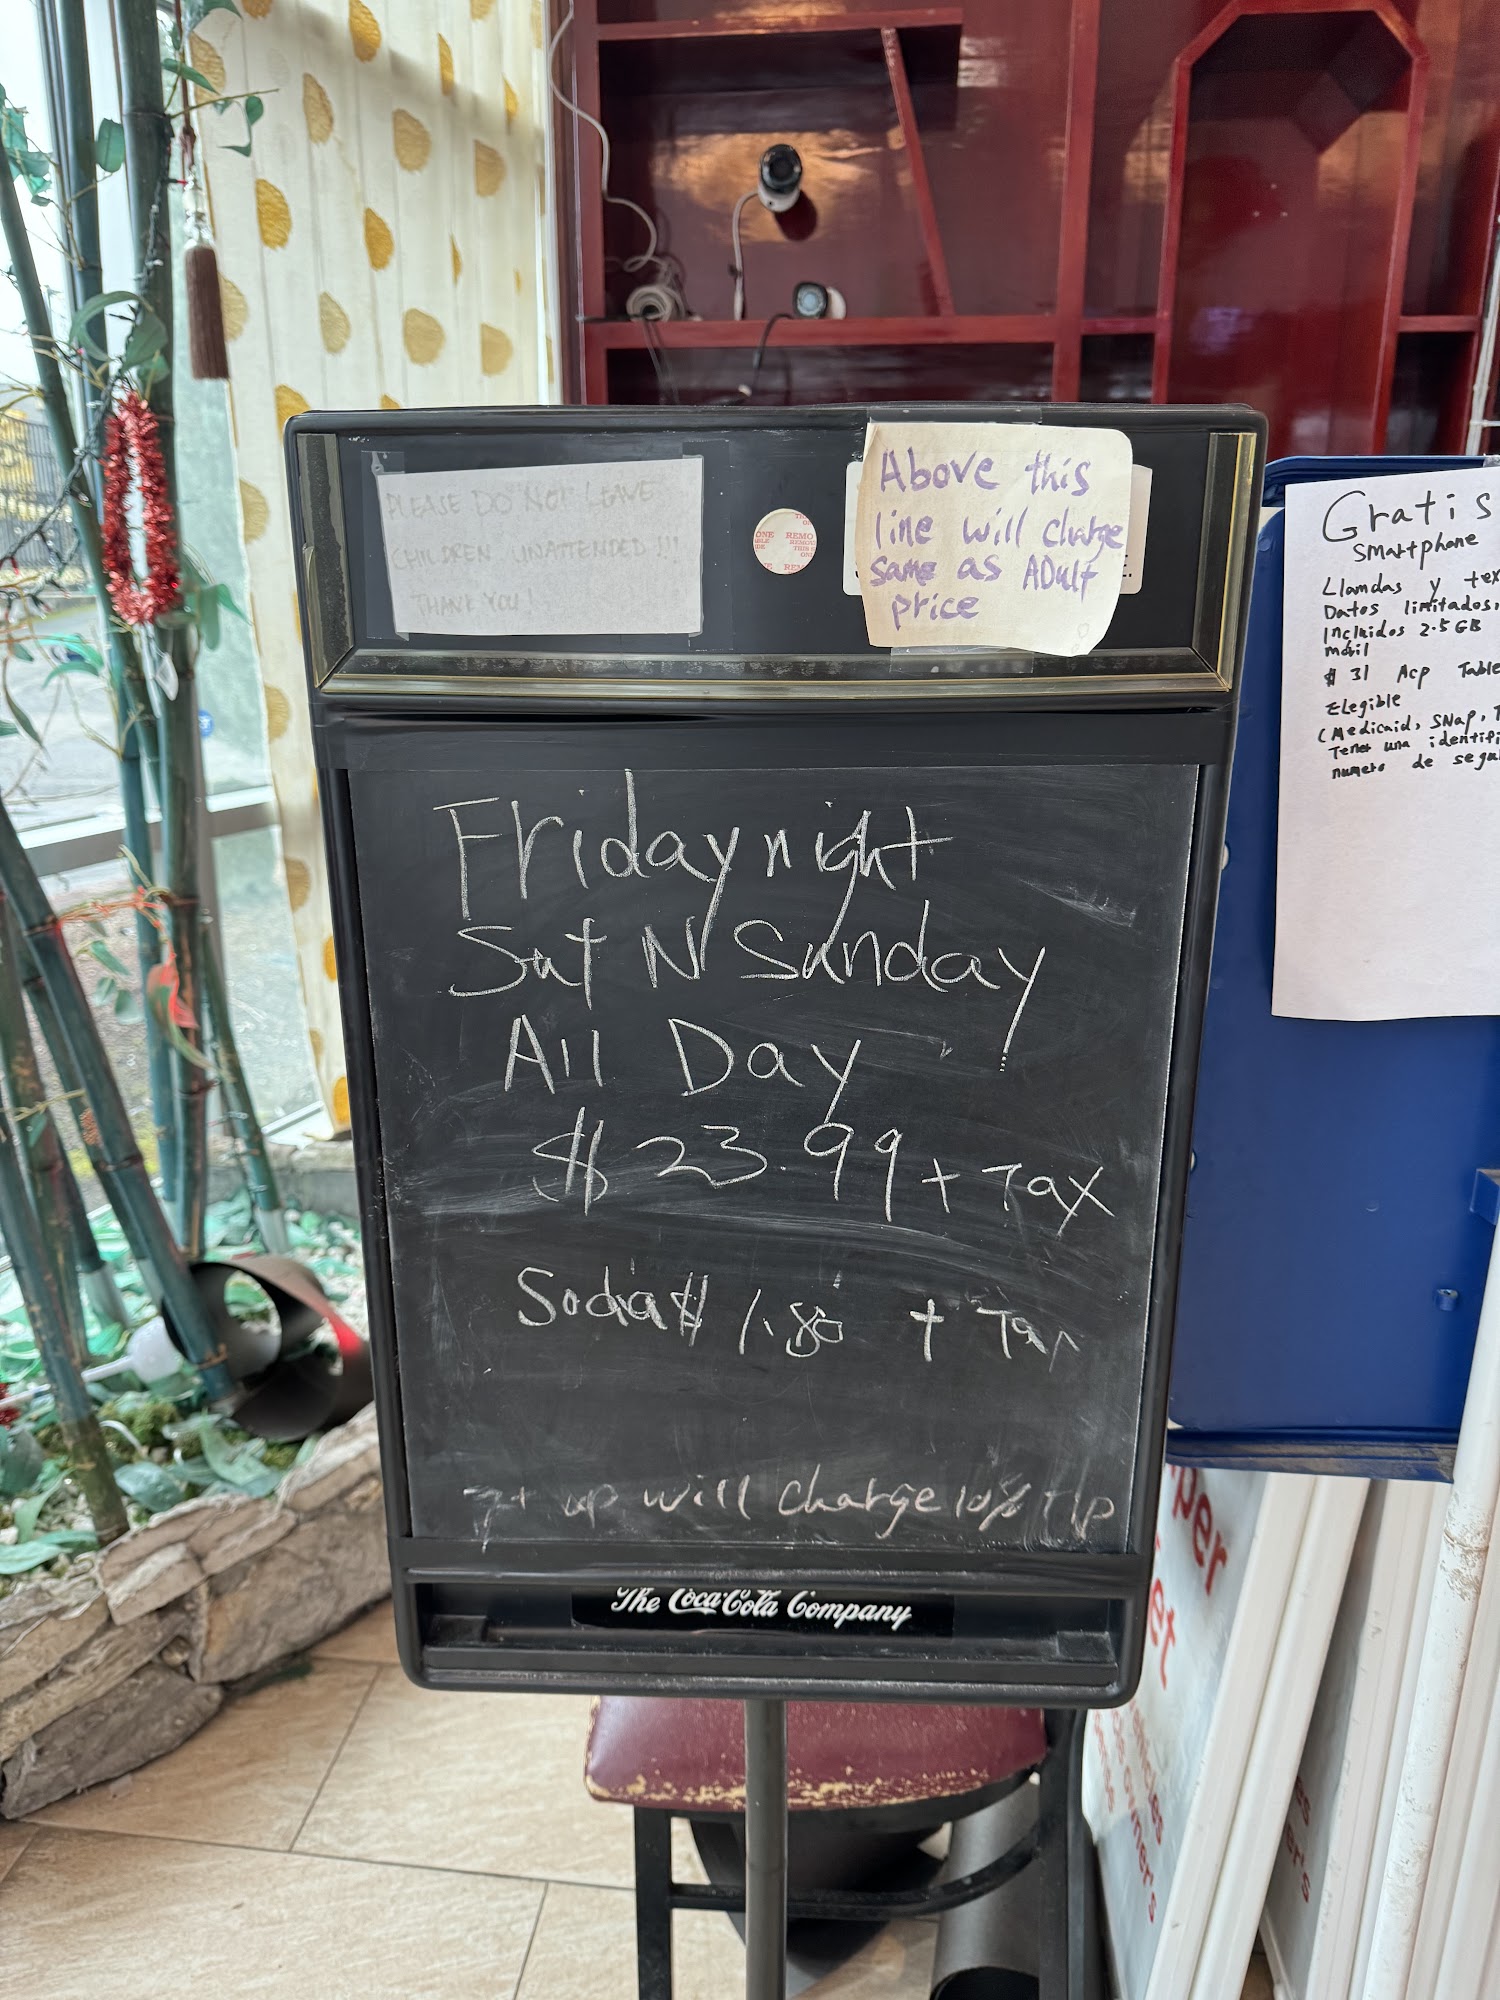 PLEASE DO NOT LEAVE
CHILDREN UNATTENDED !!!
THANK YOU!
Above this
line will charge
same as ADult
price
Friday night
Sat N Sunday
All Day
$ 23.99 + Tax
Soda $ 1.80 + Tax
7+ up will charge 10% tip
The Coca-Cola Company
Gratis
smartphone
Llamdas y tex
Datos limitados,
Incluidos 2.5 GB
Mobil
$ 31 Acp Table
Elegible
(Medicaid, SNap, T
Tener una identifi
numero de segu